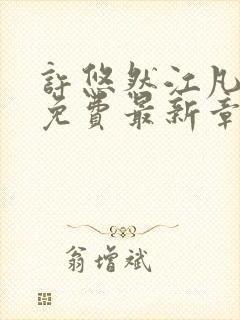 許悠然江凡
免費最新章
翁增斌